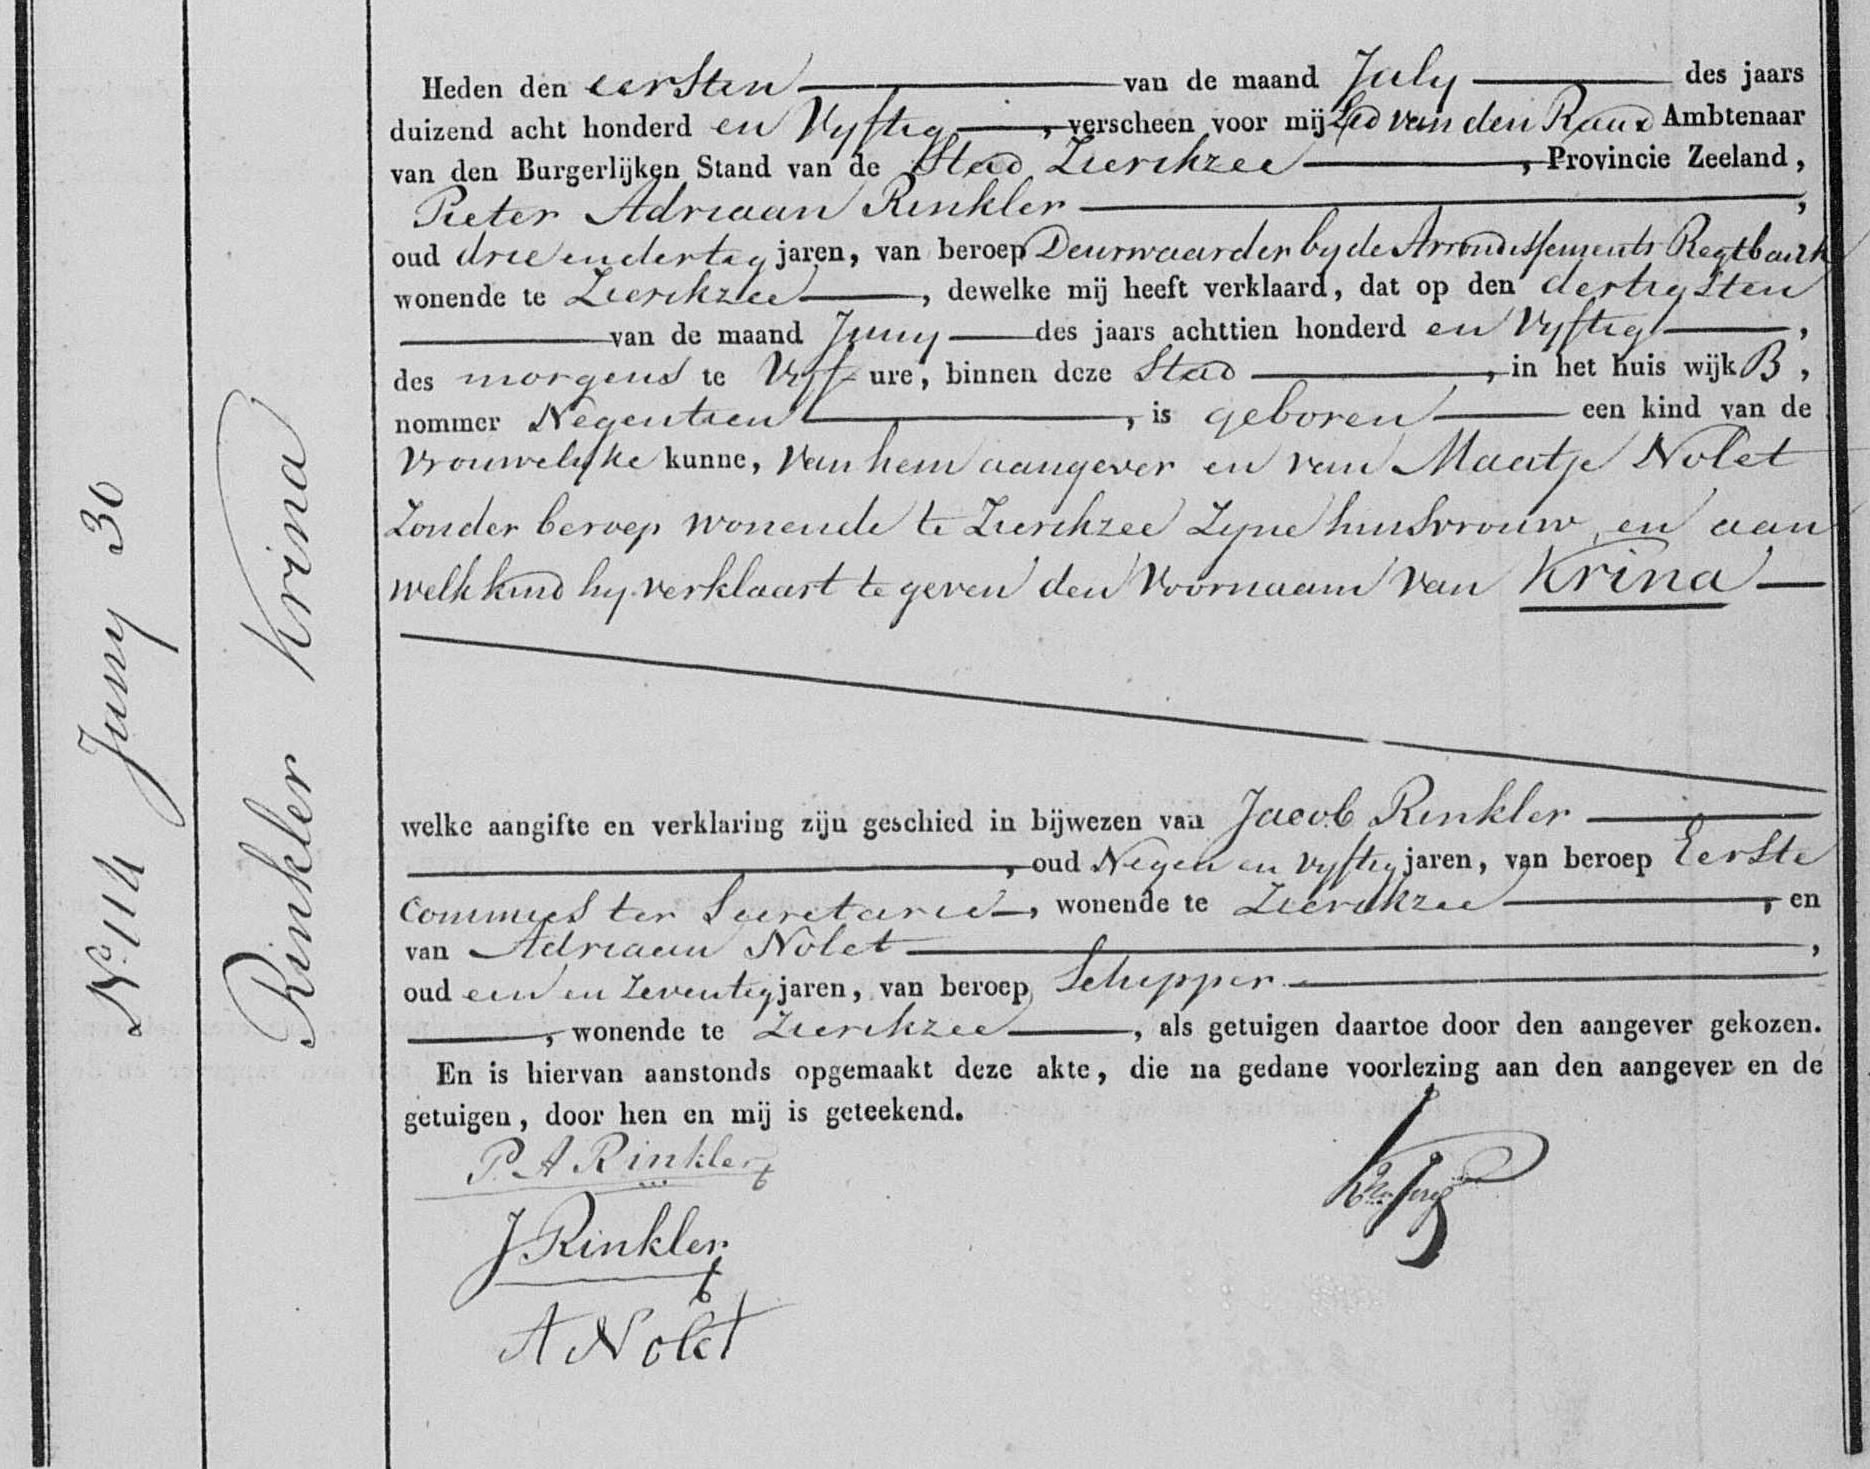 Nº 114 Juny 30
Rinkler Krina
Heden den eersten van de maand July des jaars
duizend acht honderd en Vyftig, verscheen voor mij Lid van den Raad Ambtenaar
van den Burgerlijken Stand van de Stad Zierikzee, Provincie Zeeland,
Pieter Adriaan Rinkler,
oud drie en dertig jaren, van beroep Deurwaarder by de Arrondissements Regtbank
wonende te Zierikzee, dewelke mij heeft verklaard, dat op den dertigsten
van de maand Juny des jaars achttien honderd en Vyftig,
des morgens te Vyf ure, binnen deze Stad, in het huis wijk B,
nommer Negentien, is geboren een kind van de
Vrouwelyke kunne, van hem aangever en van Maatje Nolet
Zonder beroep wonende te Zierikzee Zyne huisvrouw, en aan
welk kind hy verklaart te geven den Voornaam van Krina
welke aangifte en verklaring zijn geschied in bijwezen van Jacob Rinkler
, oud Negen en vyftig jaren, van beroep Eerste
Commies ter Secretarie, wonende te Zierikzee, en
van Adriaan Nolet,
oud een en Zeventig jaren, van beroep Schipper
, wonende te Zierikzee, als getuigen daartoe door den aangever gekozen.
En is hiervan aanstonds opgemaakt deze akte, die na gedane voorlezing aan den aangever en de
getuigen, door hen en mij is geteekend.
P. A Rinkler
J Rinkler
A Nolet